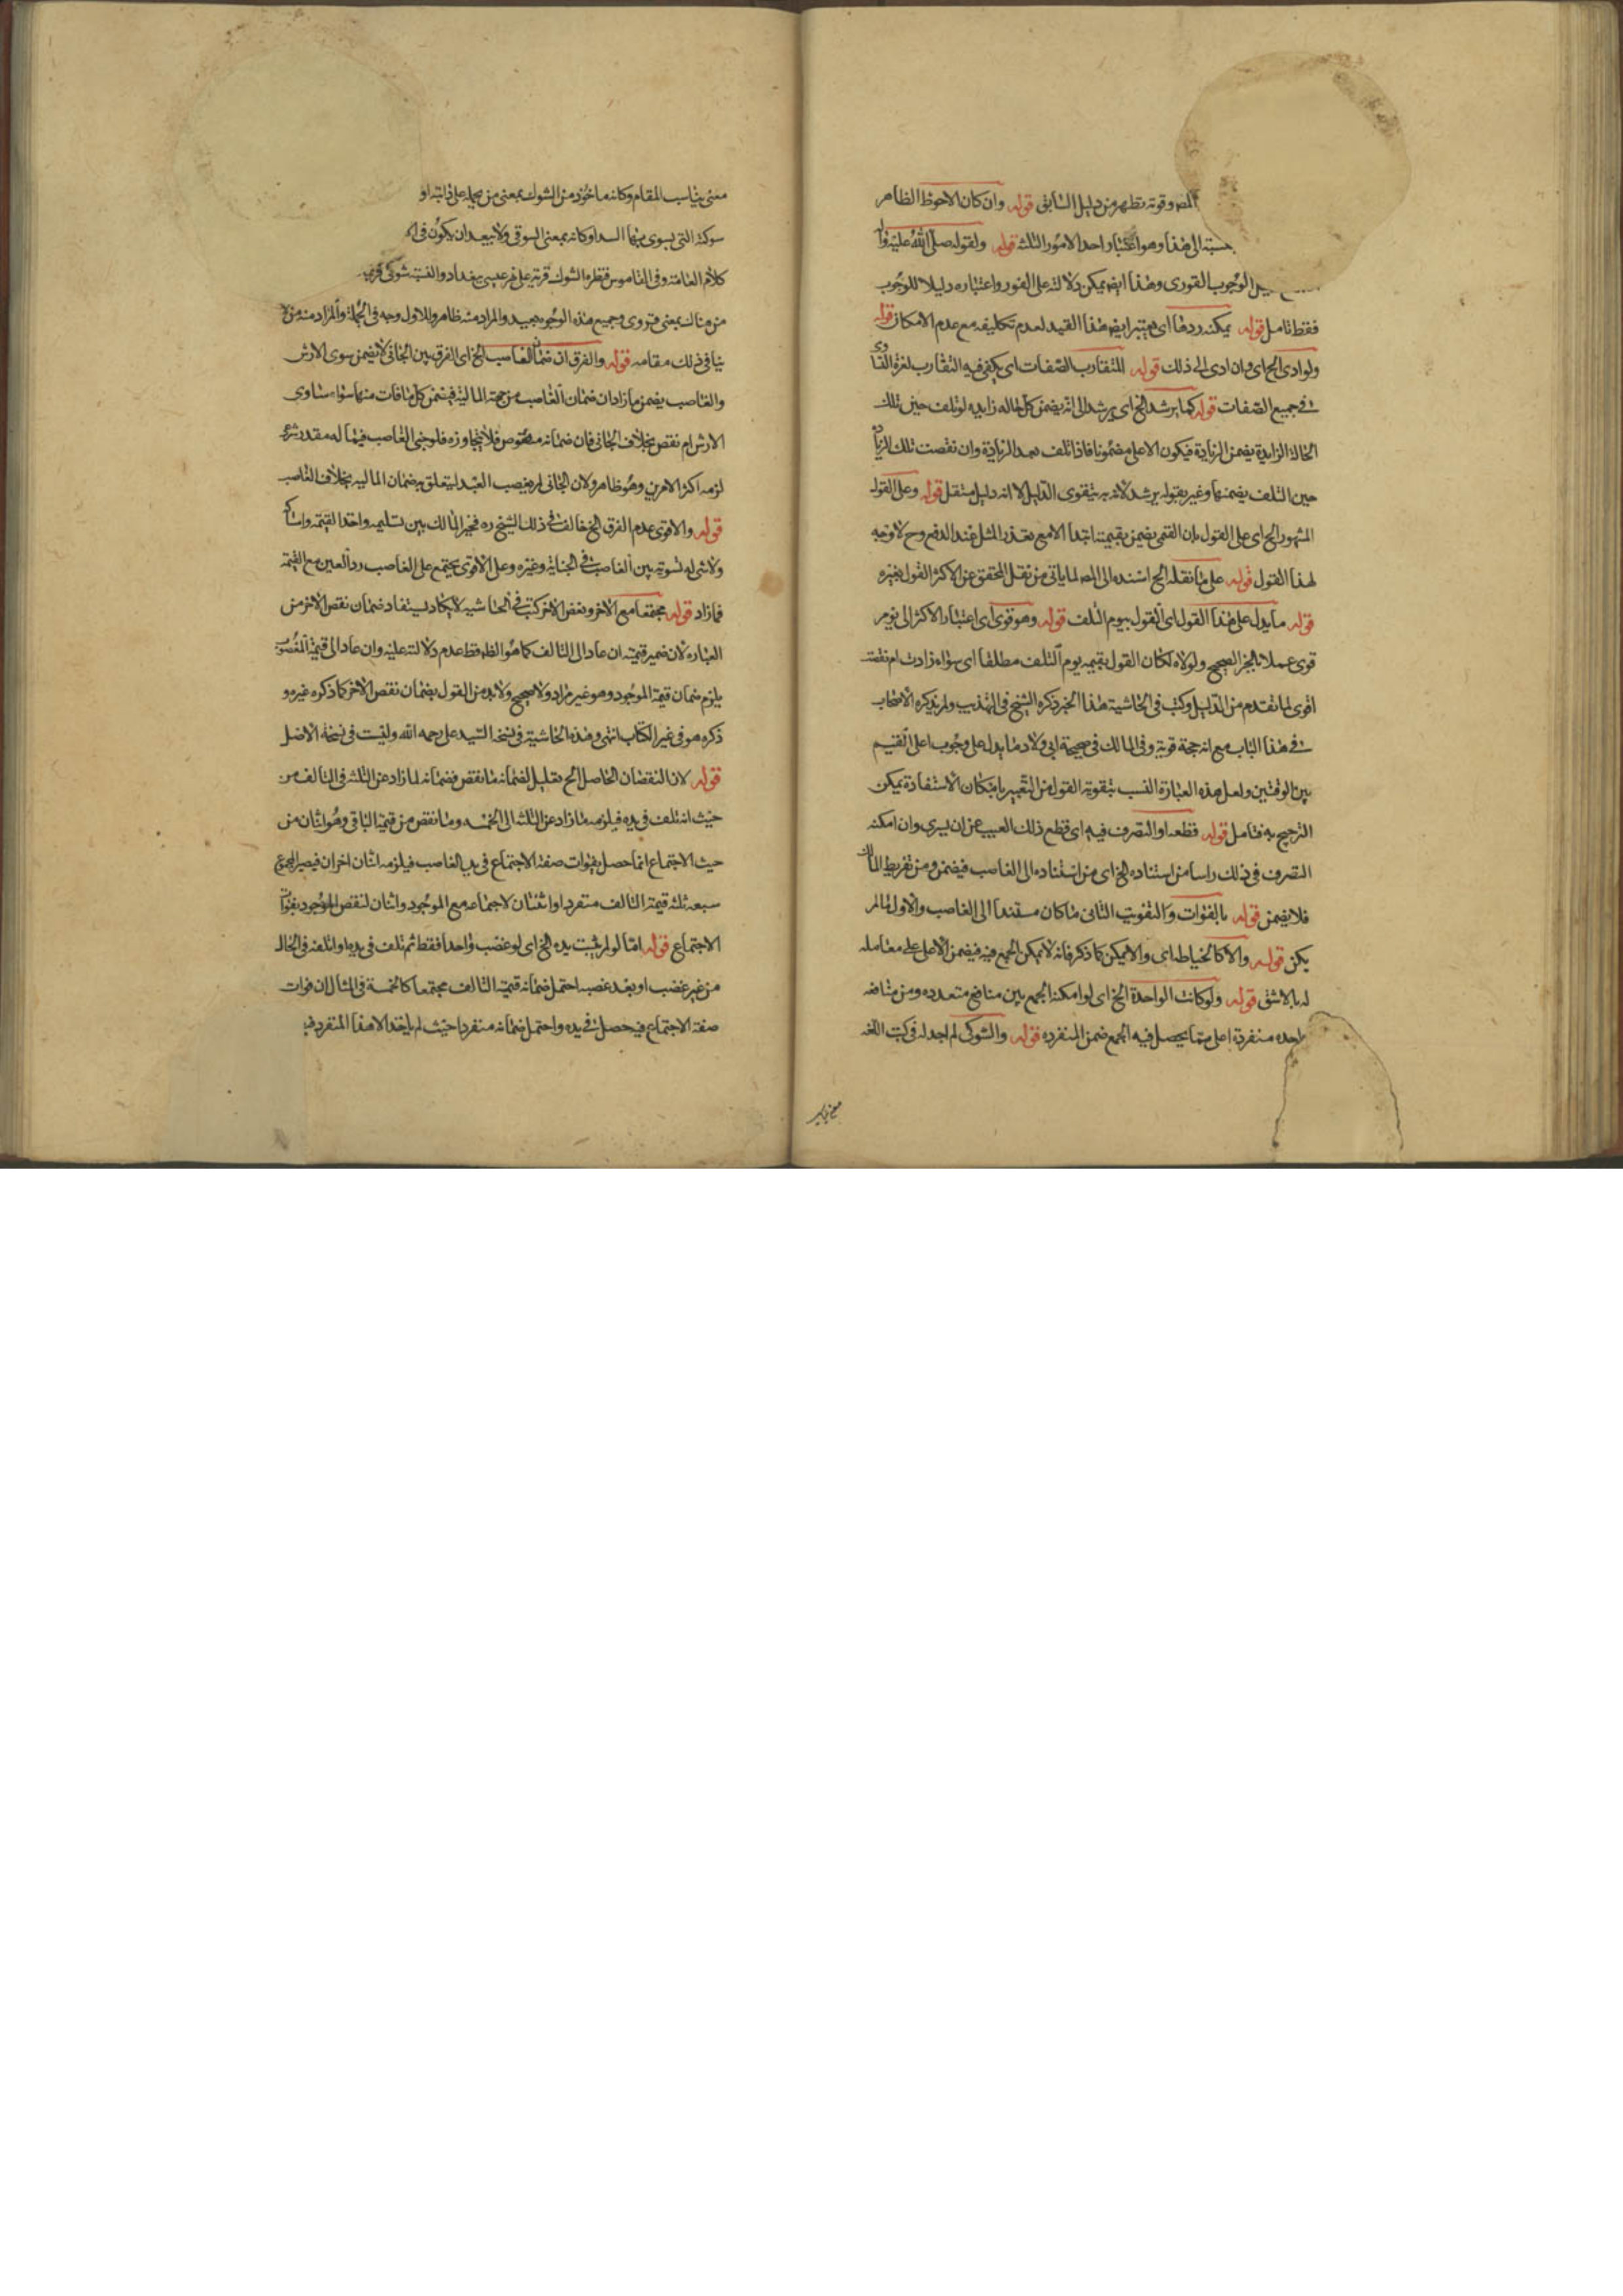 المص وقوته تظهر من دليل السابق قوله وان كان الاحوط الظاهر
الى هذا وهو اعتبار احد الامور الثلثة قوله ولقوله صلى الله عليه واله
الوجوب الفورى وهذا ايض يمكن دلالته على الفور واعتباره دليلا للوجوب
فقط تامل قوله يمكنه ردها اى يعتبر ايض هذا القيد لعدم تكليفه مع عدم الامكان قوله
ولو ادى الخ اى وان ادى الى ذلك قوله المتقارب الصفات اى يكفى فيه التقارب لعزة التساوى
فى جميع الصفات قوله كما يرشد الخ اى يرشد الى انه يضمن كل حاله زايده لو تلف حين تلك
الحالة الزايدة يضمن الزيادة فيكون الاعلى مضمونا فاذا تلف بعد الزيادة وان نقصت تلك الزيادة
حين التلف يضمنها وغير بقوله يرشد لانه به يتقوى الدليل لا انه دليل مستقل قوله وعلى القول
المشهور الخ اى على القول بان القيمى يضمن بقيمته ابتداء الا مع تعذر المثل عند الدفع وح لا وجه
لهذا القول قوله على ما نقله الخ اسنده الى المص لما ياتى من نقل المحقق عن الاكثر القول بغيره
قوله ما يدل على هذا القول اى القول بيوم التلف قوله وهو قوى اى اعتبار الاكثر الى يوم
قوى عملا بالخبر الصحيح ولولاه لكان القول بقيمه يوم التلف مطلقا اى سواء زادت ام نقصت
اقوى لما تقدم من الدليل وكتب فى الحاشية هذا الخبر ذكره الشيخ فى التهذيب ولم يذكره الاصحاب
فى هذا الباب مع انه حجة قوية وفى المسالك فى صحيحة ابى ولاد ما يدل على وجوب اعلى القيم
بين الوقتين ولعل هذه العبارة انسب بتقوية القول من التعبير بامكان الاستفادة يمكن
الترجيح به فتامل قوله قطعه او التصرف فيه اى قطع ذلك العيب عن ان يسرى وان امكنه
التصرف فى ذلك راسا من استناده الخ اى من استناده الى الغاصب فيضمن ومن تفريط المالك
فلا يضمن قوله بالفوات والتفويت الثانى ما كان مستندا الى الغاصب والاول ما لم
يكن قوله والا كالخياطه اى والا يمكن كما ذكر فانه لا يمكن الجمع فيه فيضمن الاعلى معامله
له بالاشق قوله ولو كانت الواحدة الخ اى لو امكنه الجمع بين منافع متعدده ومن منافعه
واحده منفردة اعلى مما يحصل فيه الجمع ضمن المنفرده قوله والشوكى لم اجد له فى كتب اللغه
معنى يناسب المقام وكانه ماخوذ من الشوك بمعنى من يحمله على دابته او
شوكته التى يسوى بها السدا وكانه بمعنى السوقى ولا يبعد ان يكون فى
كلام العامة وفى القاموس قنطرة الشوك قرية على نهر عيسى ببغداد والنسبة شوكى
من هناك بمعنى قروى وجميع هذه الوجوه بعيد والمراد منه ظاهر وللاول وجه فى الجملة والمراد منه من لا
ينافى ذلك مقامه قوله والفرق ان ضمان الغاصب الخ اى الفرق بين الجانى لا يضمن سوى الارش
والغاصب يضمن ما زاد ان ضمان الغاصب من جهة المالية فيضمن كل ما فات منها سواء ساوى
الارش ام نقص بخلاف الجانى فان ضمانه منصوص فلا يتجاوزه فلو جنى الغاصب فيما له مقدر شرعى
لزمه اكثر الامرين وهو ظاهر ولان الجانى لم يغصب العبد ليتعلق به ضمان الماليه بخلاف الغاصب
قوله والاقوى عدم الفرق الخ خالف فى ذلك الشيخ ره فخير المالك بين تسليمه واخذ القيمة وامساكه
ولا شى له لتسويته بين الغاصب فى الجناية وغيره وعلى الاقوى يجتمع على الغاصب رد العين مع القيمة
فما زاد قوله مجتمعا مع الاخر ونقص الاخر كتب فى الحاشيه لا يكاد يستفاد ضمان نقص الاخر من
العباره لان ضمير قيمته ان عاد الى التالف كما هو الظ فظ عدم دلالته عليه وان عاد الى قيمة المغصوب
يلزم ضمان قيمة الموجود وهو غير مراد ولا صحيح ولا بد من القول بضمان نقص الاخر كما ذكره غيره و
ذكره هو فى غير الكتاب انتهى وهذه الحاشية فى نسخة السيد على رحمه الله وليست فى نسخة الاصل
قوله لان النقصان الحاصل الخ تعليل لضمانه ما نقص فضمانه لما زاد عن الثلثة فى التالف من
حيث انه تلف فى يده فيلزمه ما زاد عن الثلثه الى الخمسه وما نقص من قيمة الباقى وهو اثنان من
حيث الاجتماع انما حصل بفوات صفة الاجتماع فى يد الغاصب فيلزمه اثنان اخران فيصير المجموع
سبعه ثلثه قيمة التالف منفردا واثنان لاجتماعه مع الموجود واثنان لنقص الموجود بفوات
الاجتماع قوله اما لو لم يثبت يده الخ اى لو غصب واحدا فقط ثم تلف فى يده او اتلفه فى الحال
من غير غصب او بعد غصبه احتمل ضمانه قيمة التالف مجتمعا كالخمسة فى المثال لان فوات
صفة الاجتماع فيه حصل فى يده واحتمل ضمانه منفردا حيث لم ياخذ الا هذا المنفرد